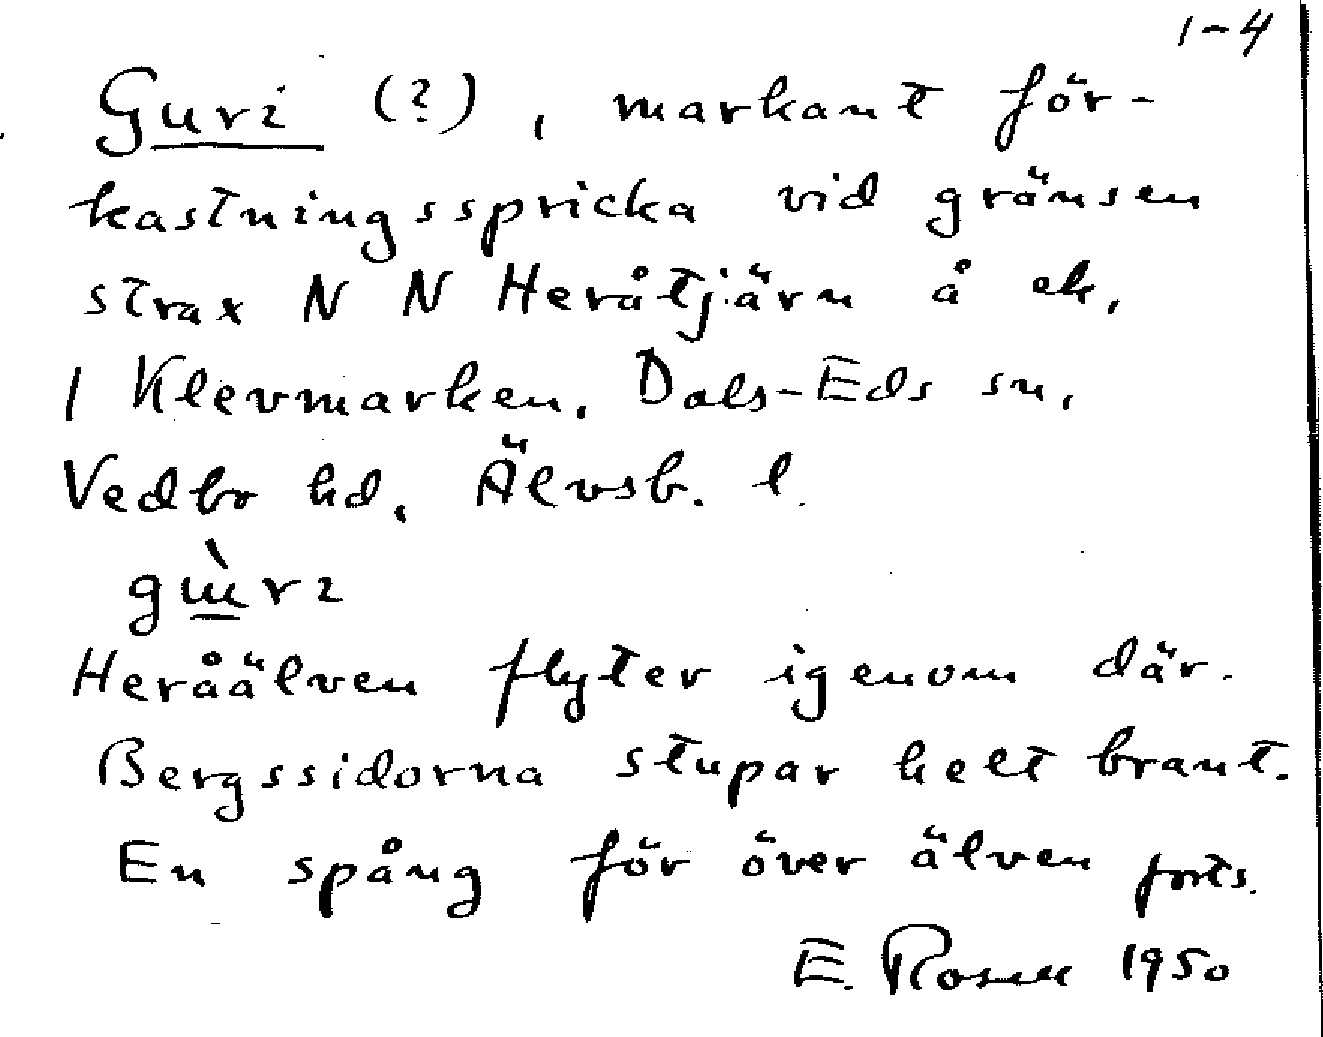 1-4
Guri (?), markant för-
kastningsspricka vid gränsen
strax N N Heråtjärn å ek.
1 Klevmarken, Dals-Eds sn,
Vedbo hd, Älvsb. l.
Heråälven flyter igenom där.
Bergssidorna stupar helt brant.
En spång för över älven forts.
E. Rosell 1950